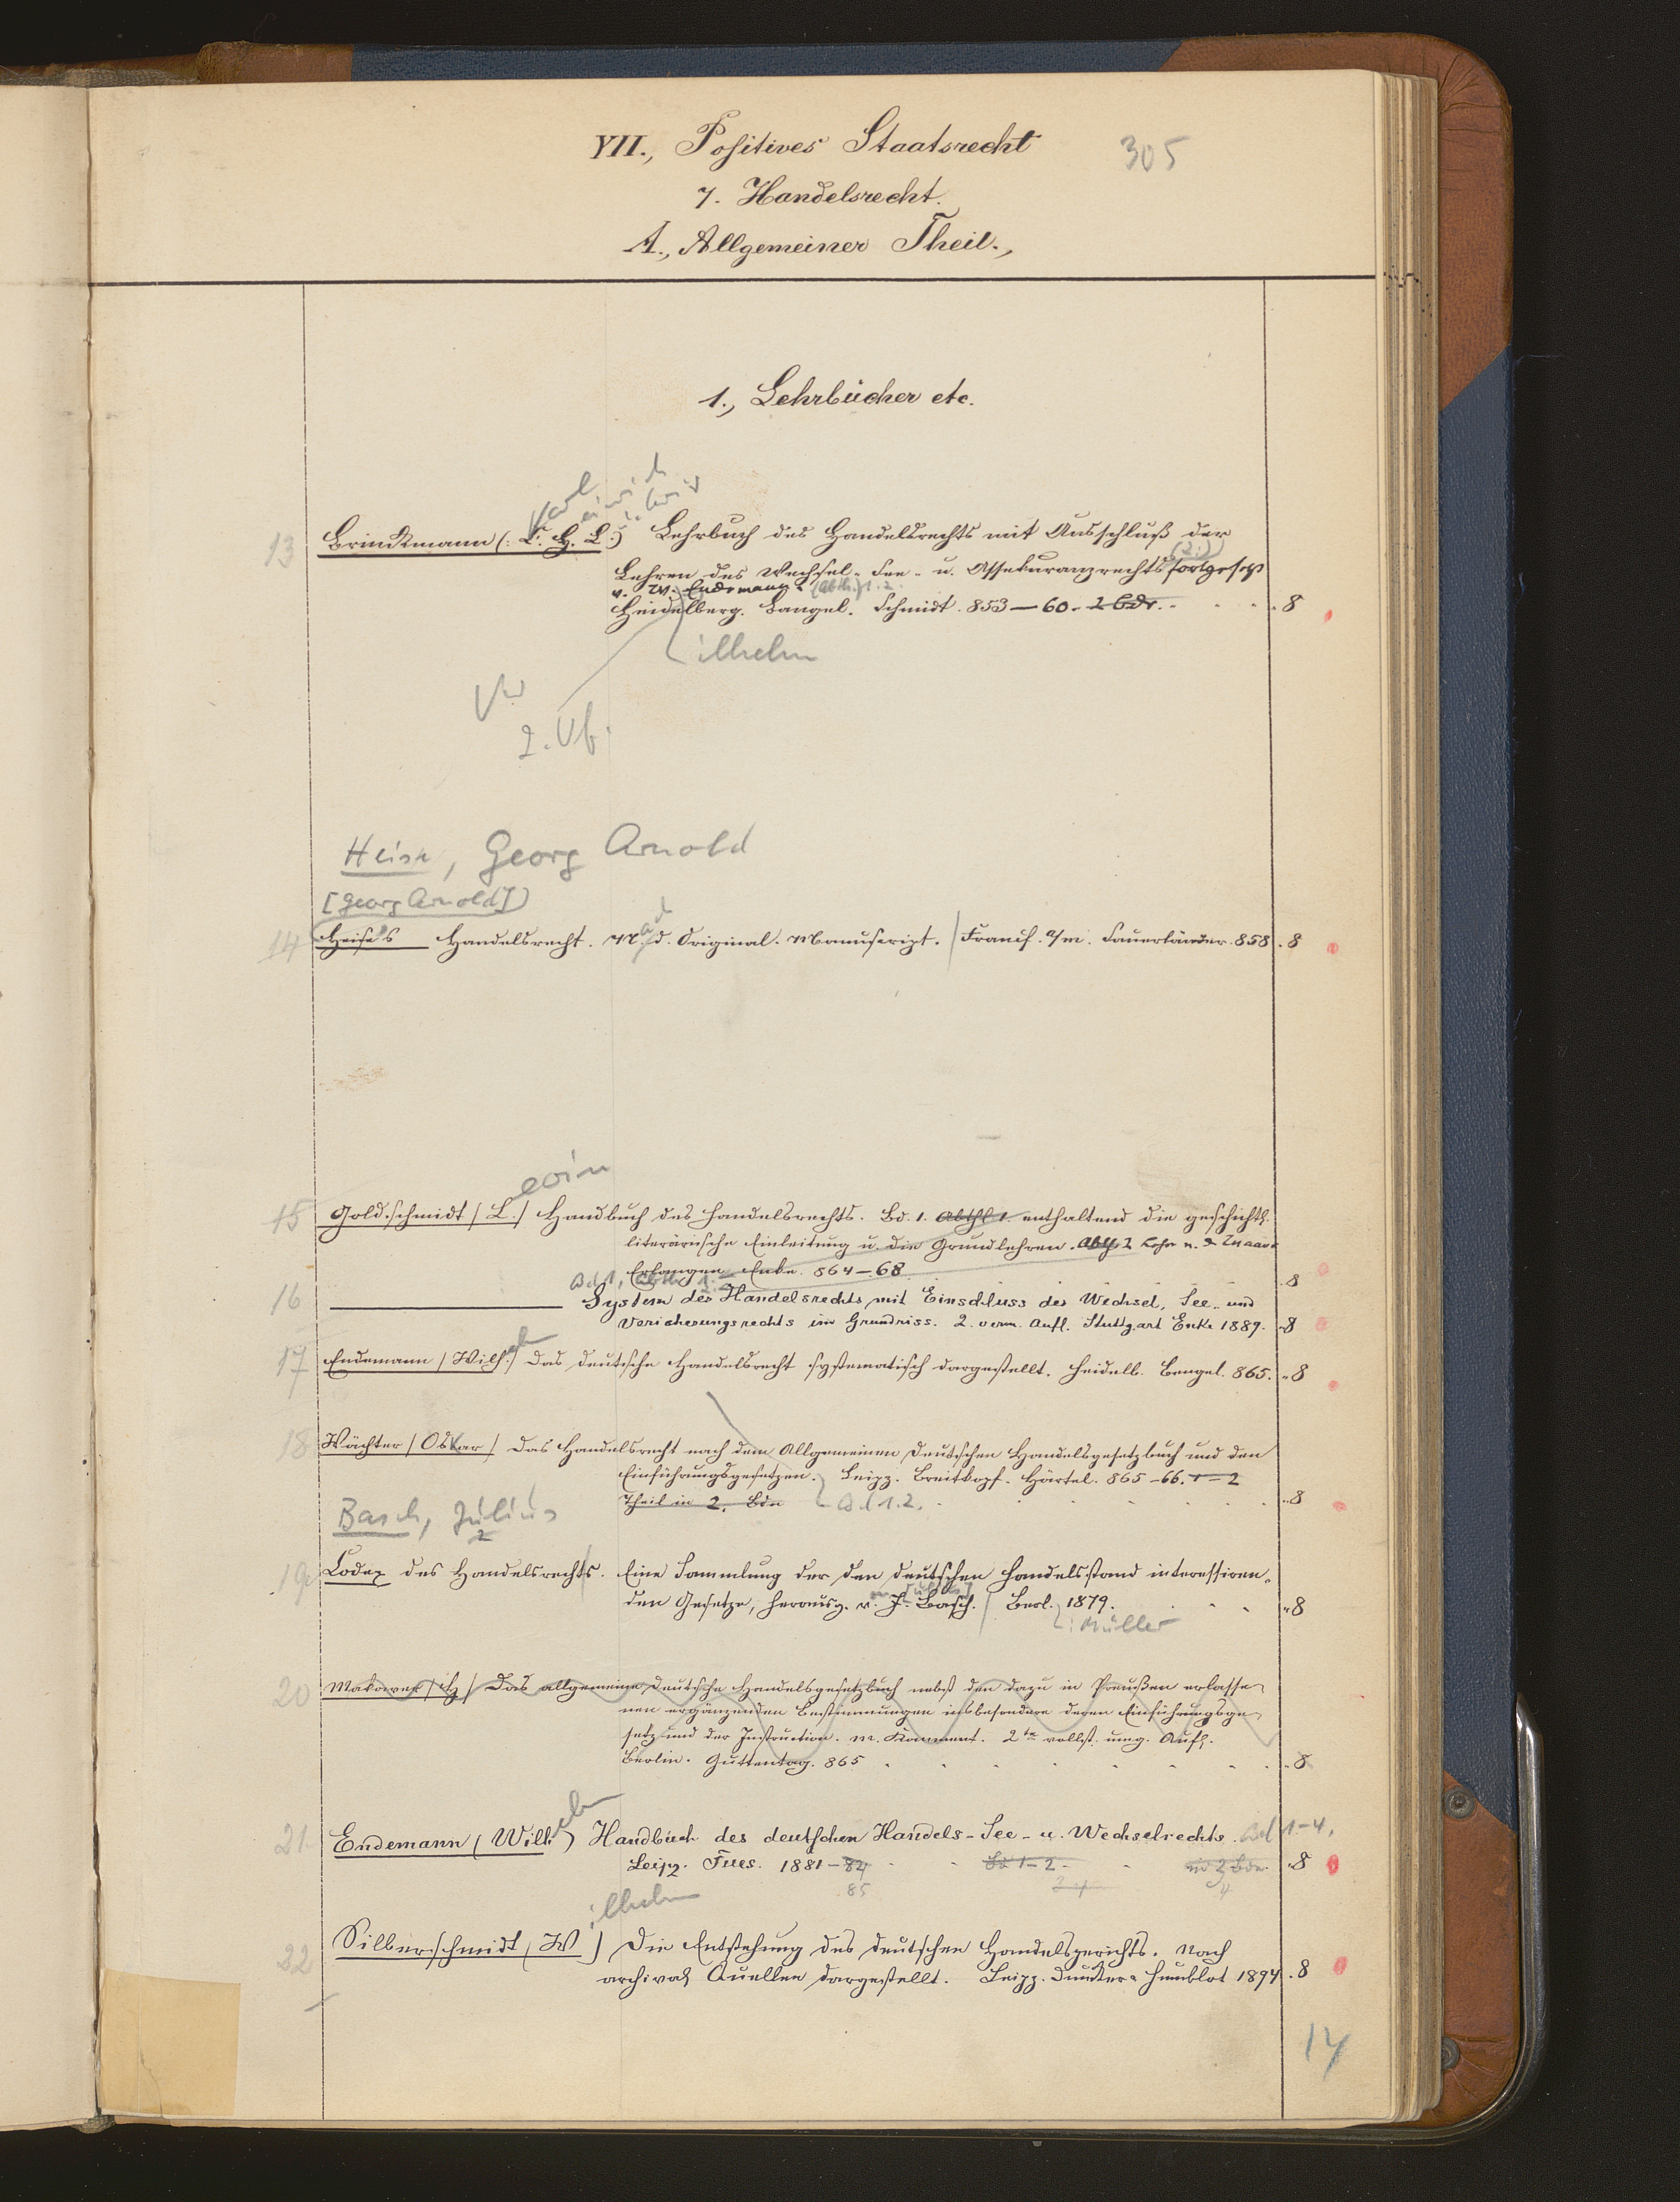 VII., Positives Staatsrecht
305
7. Handelsrecht.
A., Allgemeiner Theil.,
1., Lehrbücher etc.
Karl einrich
13 Brinckmann (: C. H. L.:) Lehrbuch des Handelsrechts mit Ausschluß der
Lehren des Wechsel- See- u. Assekuranzrechts fortgesetzt
v. W. Endemann (Abth.) 1.2.
Heidelberg. Bangel. Schmidt. 853–60. 2 Bde. 8
ilhelm
2. Vf.
Heise, Georg Arnold
[Georg Arnold]
14 Heise's Handelsrecht. N. d. Original-Manuscript. Francf. a/m. Sauerländer. 858. 8
evin
15 Goldschmidt (L.) Handbuch des Handelsrechts. Bd. 1. Abthl 1. enthaltend die geschichtl.
literärische Einleitung u. die Grundlehren. Abth. 2 Lehre v. d. Waare
Erlangen Enke. 864–68 8
Bd 1, Abth. 1.2
16 System des Handelsrechts mit Einschluss des Wechsel, See- und
Versicherungsrechts im Grundriss. 2. verm. Aufl. Stuttgart Enke 1889. 8
17 Endemann (Wilh.) Das deutsche Handelsrecht systematisch dargestellt. Heidelb. Bangel. 865. 8
18 Wächter (Oskar) Das Handelsrecht nach dem Allgemeinen Deutschen Handelsgesetzbuch und den
Einführungsgesetzen. Leipz. Breitkopf. Härtel. 865–66. 1–2
Theil in 2. Bdn Bd 1.2. 8
Basch, Julius
19 Codex des Handelsrechts. Eine Sammlung der den deutschen Handelsstand interessiren-
den Gesetze, herausg. v. J. Basch. Berl. 1879. 8
: Müller
20 Makower (H) Das allgemeine deutsche Handelsgesetzbuch nebst den dazu in Preußen erlasse-
nen ergänzenden Bestimmungen insbesondere deren Einführungsge-
setz und der Instruction. m. Komment. 2te vollst. umg. Aufl.
Berlin. Guttentag. 865 8
21 Endemann (Wilh) Handbuch des deutschen Handels- See- u. Wechselrechts. Bd 1–4,
Leipz. Fues. 1881–84 Bd 1–2 in 2 Bde. 8
85 4
ilhelm
22 Silberschmidt (W) Die Entstehung des deutschen Handelsgerichts. Nach
archival. Quellen dargestellt. Leipz. Duncker & Humblot 1894. 8
14